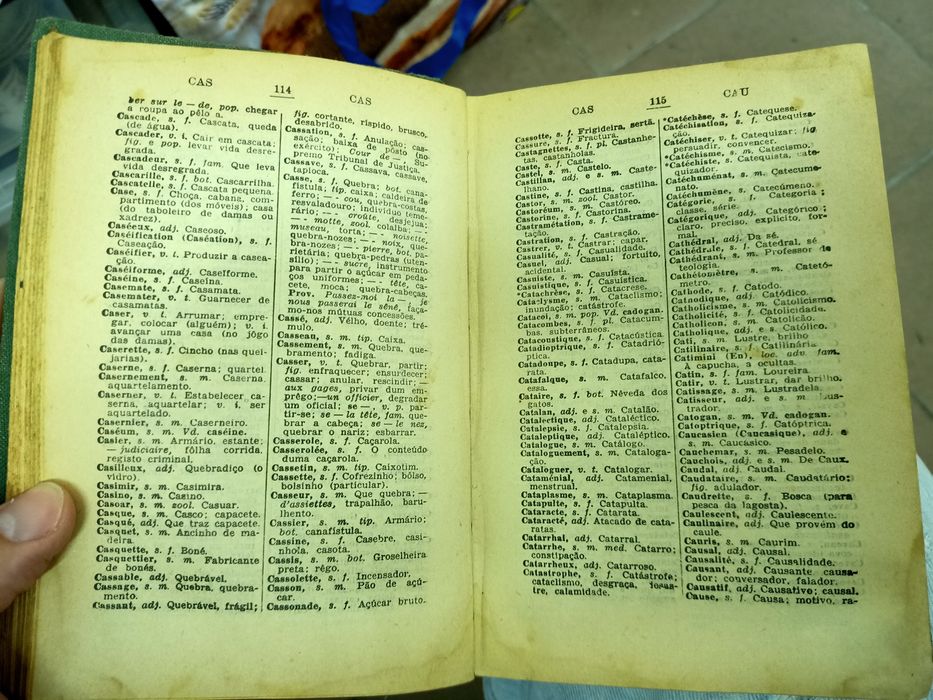 CAS
114
CAS
ber sur le — de, pop. chegar
a roupa ao pêlo a.
Cascade, s. f. Cascata, queda
(de água).
Cascader, v. i. Cair em cascata;
fig. e pop. levar vida desre-
grada.
Cascadeur, s. f. fam. Que leva
vida desregrada.
Cascarille, s. f. bot. Cascarrilha.
Cascatelle, s. f. Cascata pequena.
Case, s. f. Choça, cabana, com-
partimento (dos móveis); casa
(do taboleiro de damas ou
xadrez).
Caséeux, adj. Caseoso.
Caséification (Caséation), s. f.
Caseação.
Caséifier, v. t. Produzir a casea-
ção.
Caséiforme, adj. Caseiforme.
Caséine, s. f. Caseína.
Casemate, s. f. Casamata.
Casemater, v. t. Guarnecer de
casamatas.
Caser, v. t. Arrumar; empre-
gar, colocar (alguém); v. i.
avançar uma casa (no jôgo
das damas).
Caserette, s. f. Cincho (nas quei-
jarias).
Caserne, s. f. Caserna; quartel.
Casernement, s. m. Caserna,
aquartelamento.
Caserner, v. t. Estabelecer ca-
serna, aquartelar; v. i. ser
aquartelado.
Casernier, s. m. Caserneiro.
Caséum, s. m. Vd. caséine.
Casier, s. m. Armário, estante;
— judiciaire, fôlha corrida,
registo criminal.
Casilleux, adj. Quebradiço (o
vidro).
Casimir, s. m. Casimira.
Casino, s. m. Casino.
Casoar, s. m. zool. Casuar.
Casque, s. m. Casco; capacete.
Casqué, adj. Que traz capacete.
Casquet, s. m. Ancinho de ma-
deira.
Casquette, s. f. Boné.
Casquettier, s. m. Fabricante
de bonés.
Cassable, adj. Quebrável.
Cassage, s. m. Quebra, quebra-
mento.
Cassant, adj. Quebrável, frágil;
fig. cortante, ríspido, brusco,
desabrido.
Cassation, s. f. Anulação; cas-
sação; baixa de pôsto (no
exército); Cour de —. Su-
premo Tribunal de Justiça.
Cassave, s. f. Cassava, cassave,
tapioca.
Casse, s. f. Quebra; bot. cana-
fístula; tip. caixa; caldeira de
ferro; — - cou, quebra-costas,
resvaladouro; indivíduo teme-
rário; — - croûte, desjejua;
— - motte, zool. colalba; —
museau, torta; — - noisette,
quebra-nozes; — - noix, que-
bra-nozes; — - pierre, bot. pa-
rietária; quebra-pedras (uten-
sílio); — - sucre, instrumento
para partir o açúcar em peda-
ços uniformes; — - tête, ca-
cete, moca; quebra-cabeças,
Prov. Passez-moi la —, je
vous passerai le séné, faça-
mo-nos mútuas concessões.
Cassé, adj. Velho, doente; tré-
mulo.
Casseau, s. m. tip. Caixa.
Cassement, s. m. Quebra, que-
bramento; fadiga.
Casser, v. t. Quebrar, partir;
fig. enfraquecer; ensurdecer;
cassar; anular, rescindir; —
aux gages, privar dum em-
prêgo; — un officier, degradar
um oficial; se —, v. p. par-
tir-se; se — la tête, fam. que-
brar a cabeça; se — le nez,
quebrar o nariz; esbarrar.
Casserole, s. f. Caçarola.
Casserolée, s. f. O conteúdo
duma caçarola.
Cassetin, s. m. tip. Caixotim.
Cassette, s. f. Cofrezinho; bôlso,
bolsinho (particular).
Casseur, s. m. Que quebra; —
d'assiettes, trapalhão, baru-
lhento.
Cassier, s. m. tip. Armário;
bot. canafístula.
Cassine, s. f. Casebre, casi-
nhola, casota.
Cassis, s. m. bot. Groselheira
preta; rêgo.
Cassolette, s. f. Incensador.
Casson, s. m. Pão de açú-
car.
Cassonade, s. f. Açúcar bruto.
CAS
115
CAU
Cassotte, s. f. Frigideira, sertã.
Cassure, s. f. Fractura.
Castagnettes, s. f. pl. Castanhe-
tas, castanholas.
Caste, s. f. Casta.
Castel, s. m. Castelo.
Castillan, adj. e s. m. Caste-
lhano.
Castine, s. f. Castina, castilha.
Castor, s. m. zool. Castor.
Castoréum, s. m. Castóreo.
Castorine, s. f. Castorina.
Castramétation, s. f. Castrame-
tação.
Castration, s. f. Castração.
Castrer, v. t. Castrar; capar.
Casualité, s. f. Casualidade.
Casuel, adj. Casual; fortuito,
acidental.
Casuiste, s. m. Casuísta.
Casuistique, s. f. Casuística.
*Catachrèse, s. f. Catacrese.
Cataclysme, s. m. Cataclismo;
inundação; catástrofe.
Catacoi, s. m. pop. Vd. cadogan.
Catacombes, s. f. pl. Catacum-
bas, subterrâneos.
Catacoustique, s. f. Catacústica
Catadioptrique, s. f. Catadrió-
ptica.
Catadoupe, s. f. Catadupa, cata-
rata.
Catafalque, s. m. Catafalco,
essa.
Cataire, s. f. bot. Nêveda dos
gatos.
Catalan, adj. e s. m. Catalão.
Catalectique, adj. Cataléctico.
Catalepsie, s. f. Catalepsia.
Cataleptique, adj. Cataléptico.
Catalogue, s. m. Catálogo.
Cataloguement, s. m. Cataloga-
ção.
Cataloguer, v. t. Catalogar.
Cataménial, adj. Catamenial,
menstrual.
Cataplasme, s. m. Cataplasma.
Catapulte, s. f. Catapulta.
Cataracte, s. f. Catarata.
Cataracté, adj. Atacado de cata-
ratas.
Catarrhal, adj. Catarral.
Catarrhe, s. m. med. Catarro;
constipação.
Catarrheux, adj. Catarroso.
Catastrophe, s. f. Catástrofe;
cataclismo, desgraça, desas-
tre, calamidade.
*Catéchèse, s. f. Catequese.
Catéchisation, s. f. Catequiza-
ção.
Catéchiser, v. t. Catequizar; fig.
persuadir, convencer.
*Catéchisme, s. m. Catecismo.
*Catéchiste, s. Catequista, cate-
quizador.
Catéchuménat, s. m. Catecume-
nato.
Catéchumène, s. Catecúmeno.
Catégorie, s. f. Categoria;
classe, série.
Catégorique, adj. Categórico;
claro, preciso, explícito, for-
mal.
Cathédral, adj. Da sé.
Cathédrale, s. f. Catedral, sé
Cathédrant, s. m. Professor de
teologia.
Cathétomètre, s. m. Catetó-
metro.
Cathode, s. f. Catodo.
Cathodique, adj. Catódico.
Catholicisme, s. m. Catolicismo.
Catholicité, s. f. Catolicidade.
Catholicon, s. m. Catolicão.
Catholique, adj. e s. Católico.
Cati, s. m. Lustre, brilho
Catilinaire, s. f. Catilinária
Catimini (En), loc. adv. fam.
À capucha, a ocultas.
Catin, s. f. fam. Loureira
Catir, v. t. Lustrar, dar brilho.
Catissage, s. m. Lustradela.
Catisseur, adj. e s. m. Lus-
trador.
Catogan, s. m. Vd. cadogan.
Catoptrique, s. f. Catóptrica.
Caucasien (Caucasique), adj. e
s. m. Caucásico.
Cauchemar, s. m. Pesadelo.
Cauchois, adj. e s. m. De Caux.
Caudal, adj. Caudal.
Caudataire, s. m. Caudatário;
fig. adulador.
Caudrette, s. f. Bosca (para
pesca da lagosta).
Caulescent, adj. Caulescente.
Caulinaire, adj. Que provém do
caule.
Cauris, s. m. Caurim.
Causal, adj. Causal.
Causalité, s. f. Causalidade.
Causant, adj. Causante causa-
dor; conversador, falador.
Causatif, adj. Causativo; causal.
Cause, s. f. Causa; motivo, ra-